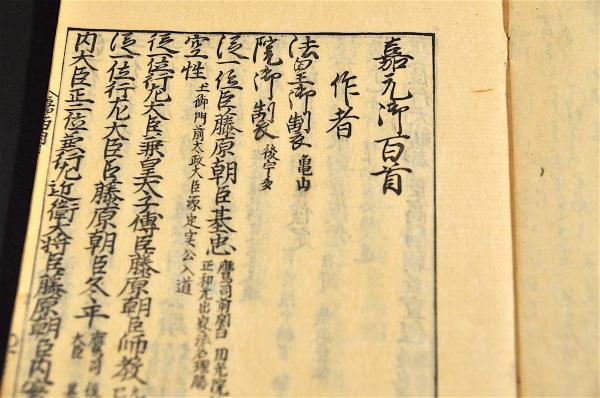 嘉元御百首
作者
法皇御製 亀山
院御製 後宇多
従一位臣藤原朝臣基忠 鷹司前関白 円光院
正和元出家法名理勝
空性 土御門前太政大臣源定実公入道
従一位行左大臣兼皇太子傅臣藤原朝臣師教
従一位行右大臣臣藤原朝臣冬平 鷹司 後
大臣
内大臣正二位兼行左近衛大将臣藤原朝臣内実